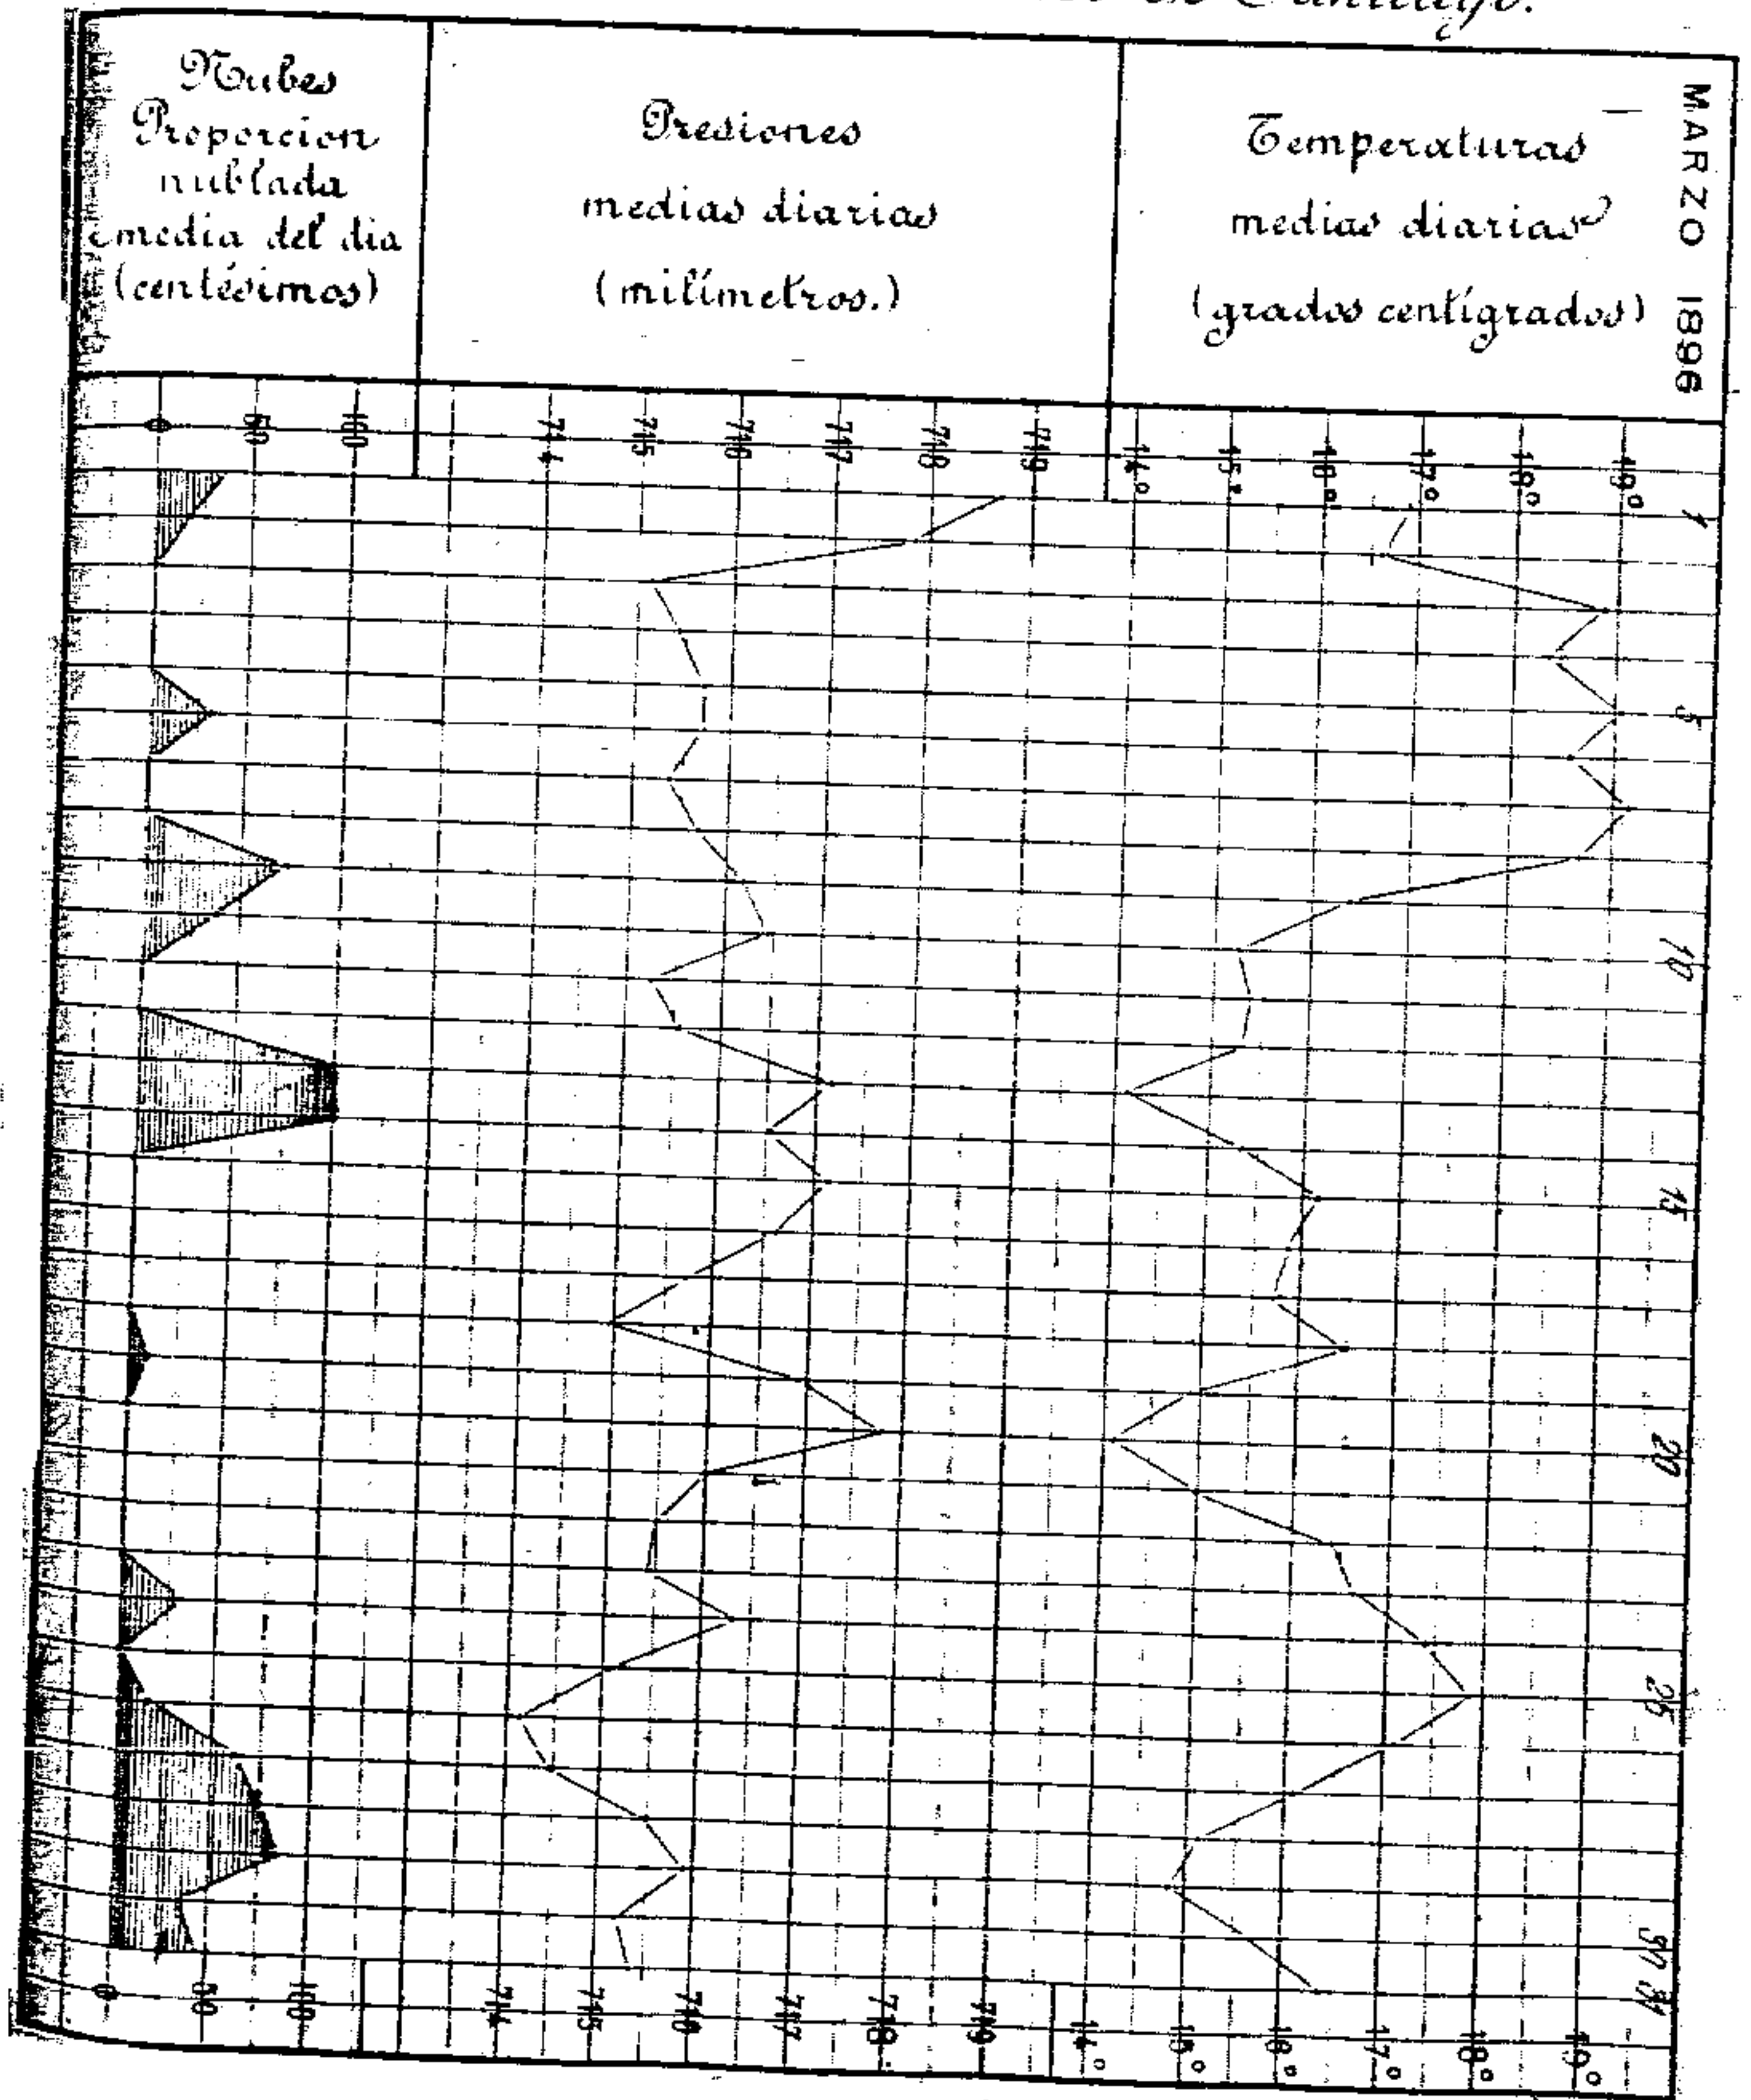 Santiago.
MARZO 1896
Nubes
Proporcion
nublada
media del dia
(centésimos)
Presiones
medias diarias
(milímetros.)
Temperaturas
medias diarias
(grados centígrados)
0 50 100 714 715 716 717 718 719 14° 15° 16° 17° 18° 19°
1
5
10
15
20
25
30 31
0 50 100 714 715 716 717 718 719 14° 15° 16° 17° 18° 19°